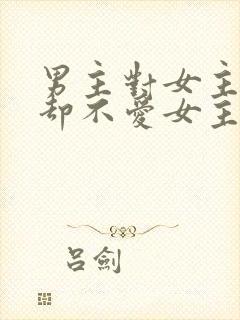 男主對女主
却不愛女主
呂劍